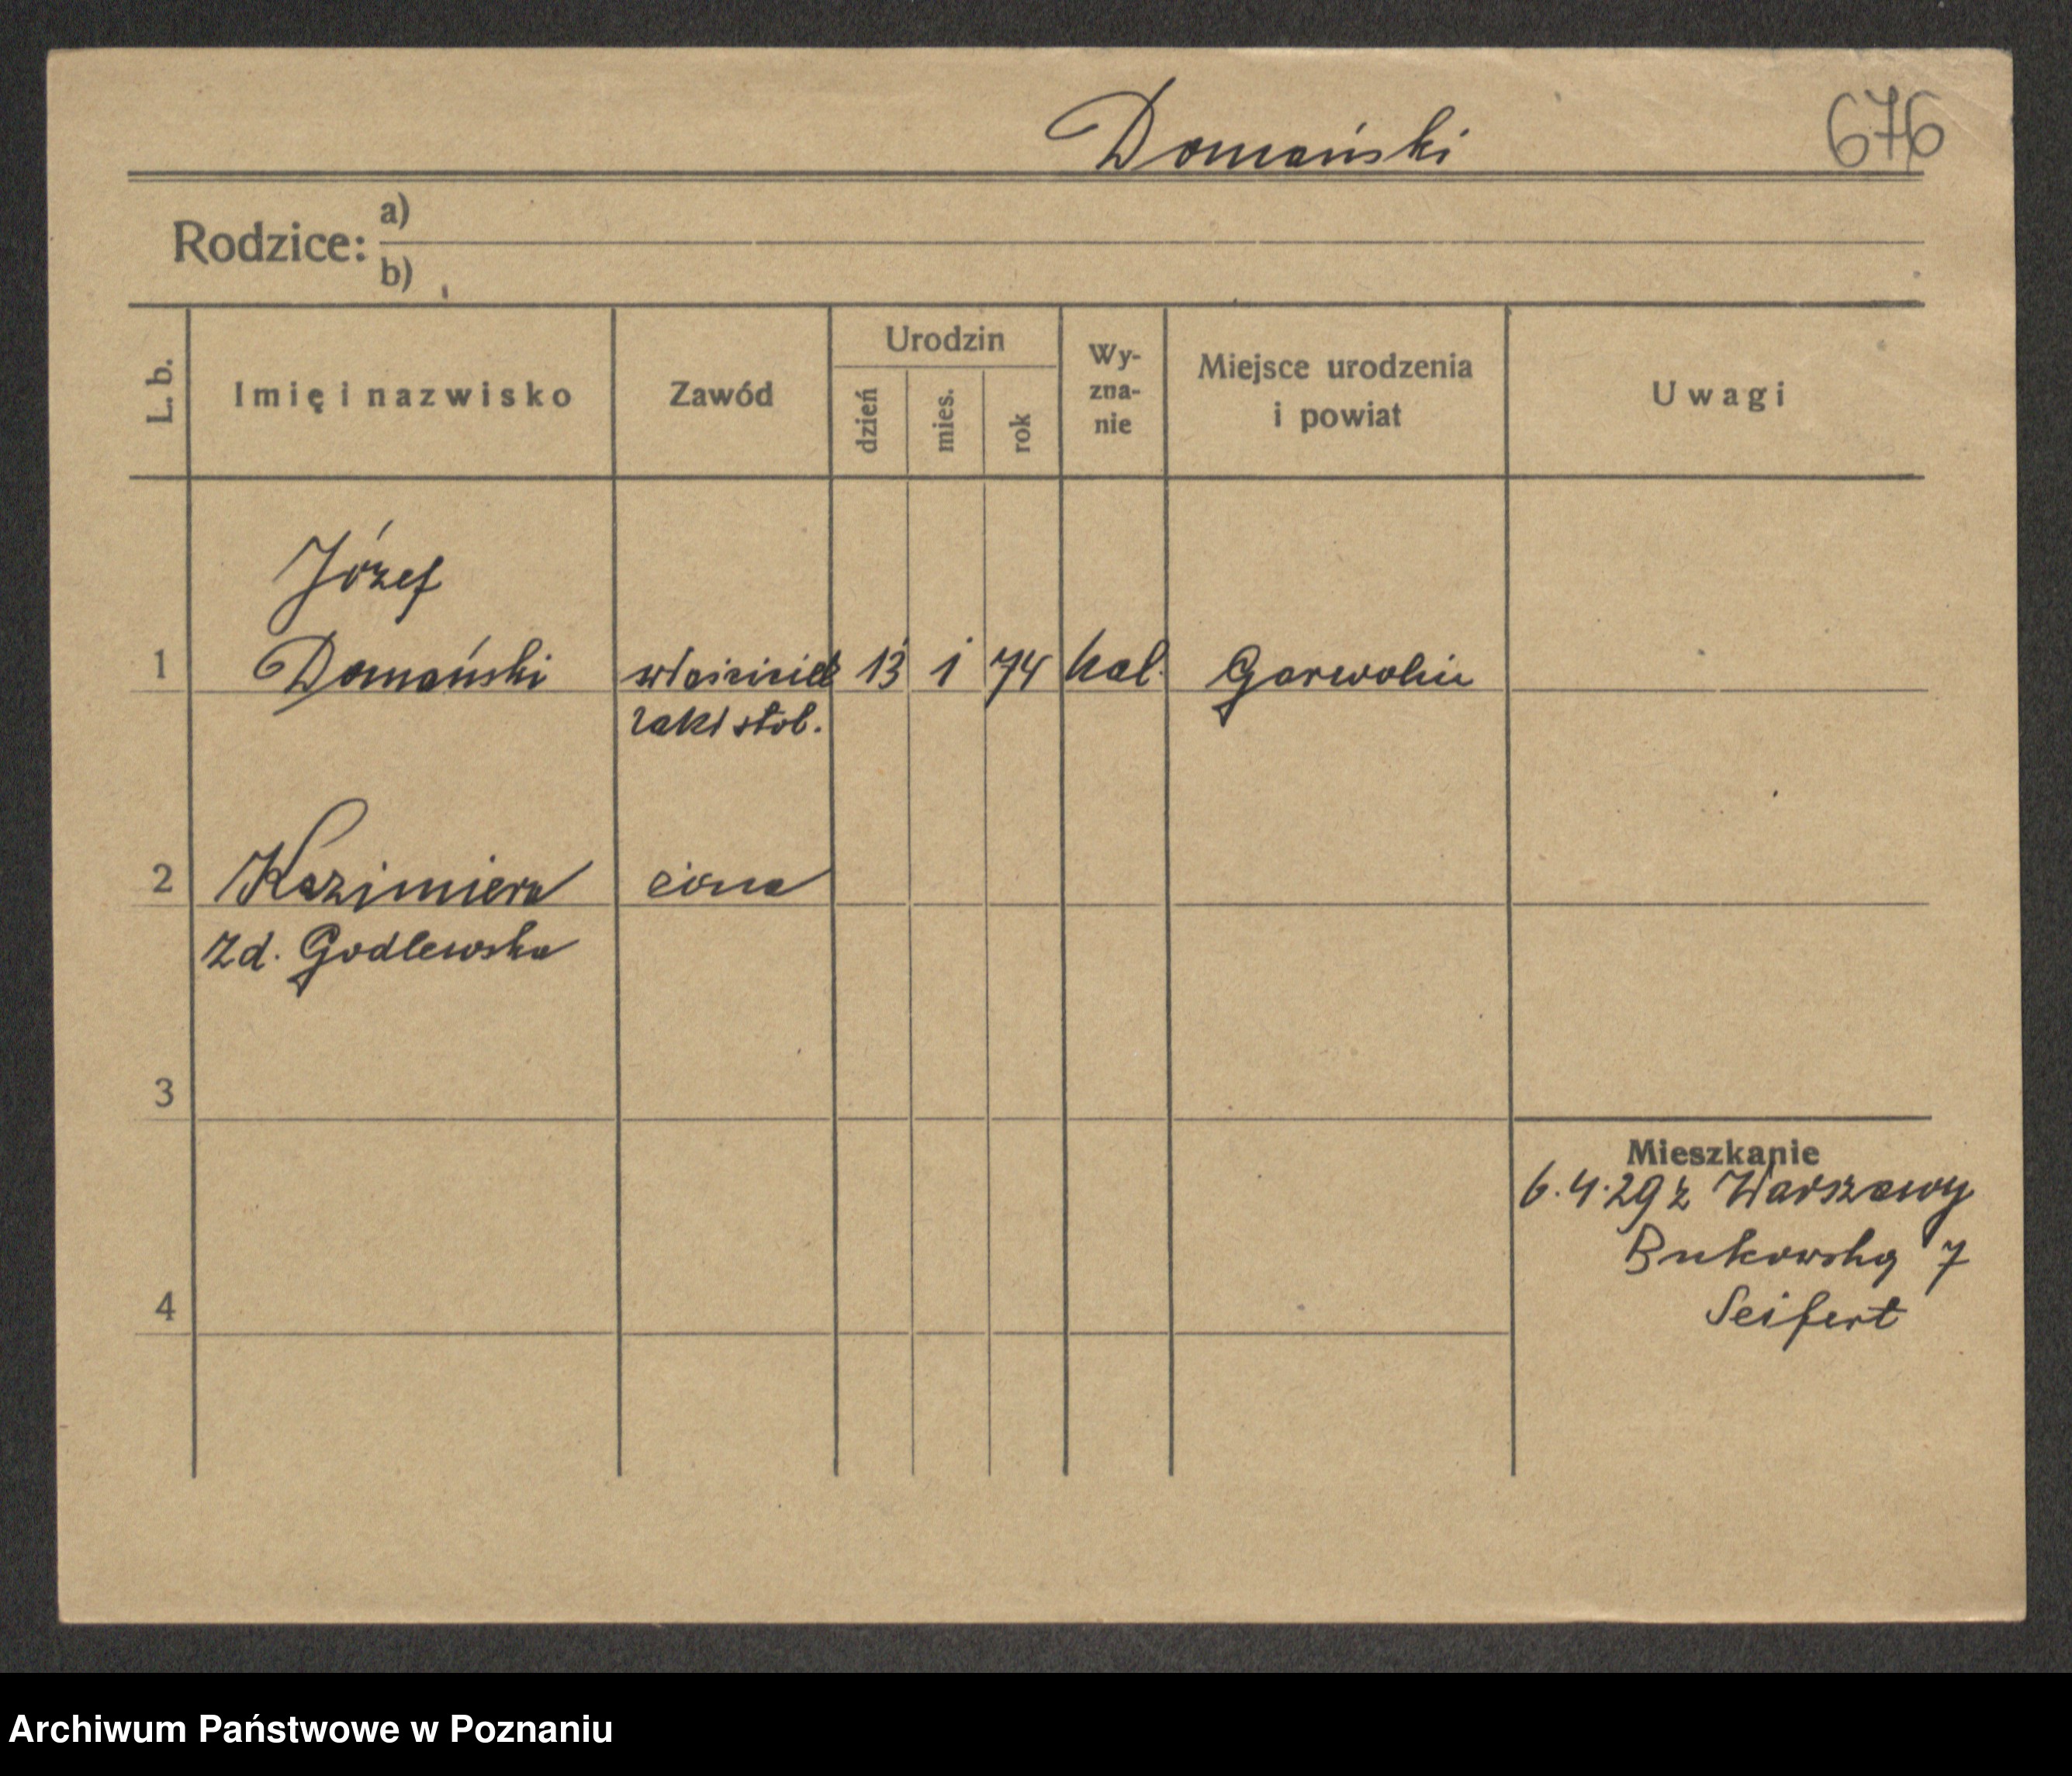 Domański 676
Rodzice: a)
b)
L. b. Imię i nazwisko Zawód Urodzin dzień mies. rok Wy-zna-nie Miejsce urodzenia i powiat Uwagi
Józef
1 Domański właściciel 13 1 74 kal. Garwolin
zakł stol.
2 Kazimiera żona
zd. Godlewska
3
Mieszkanie
6.4.29 z Warszawy
Bukowska 7
4 Seifert
Archiwum Państwowe w Poznaniu